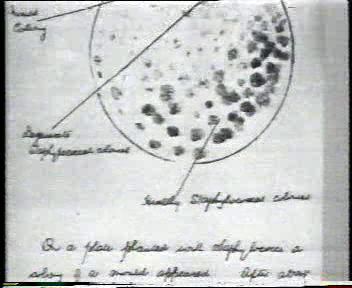 Mould
Colony
Degenerate
Staphylococcal colonies
Healthy Staphylococcal colonies
On a plate planted with staphylococci a
colony of a mould appeared. After about